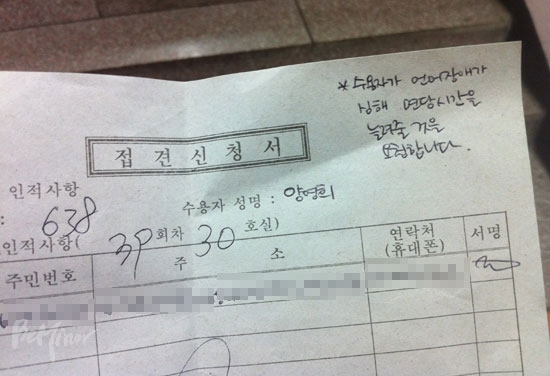 * 수용자가 언어장애가
심해 면담시간을
늘려줄 것을
요청합니다.
접 견 신 청 서
인적사항
수용자 성명 : 양영희
: 638
인적사항( 39 회차 30 호실)
주민번호 주 소 연락처 (휴대폰) 서명